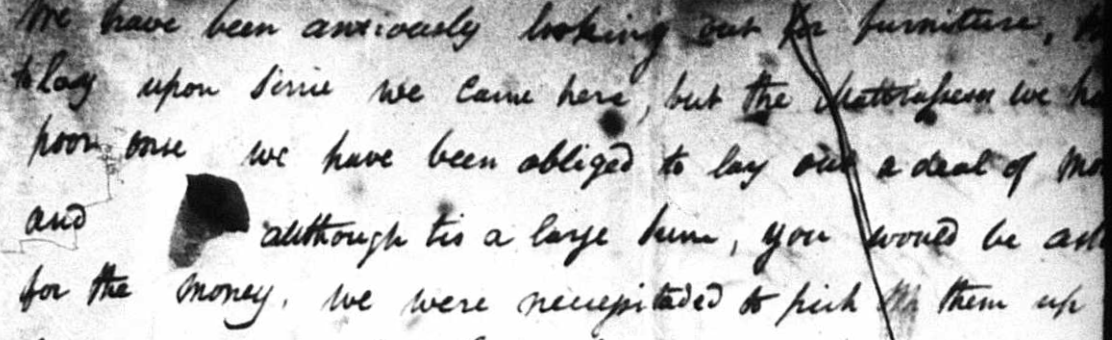 We have been anxiously looking out for furniture,
upon since we came here, but the Mattrasses we
poor ones we have been obliged to lay out a deal of
and although tis a large sum, you would be
for the money. we were necessitaded to pick them up